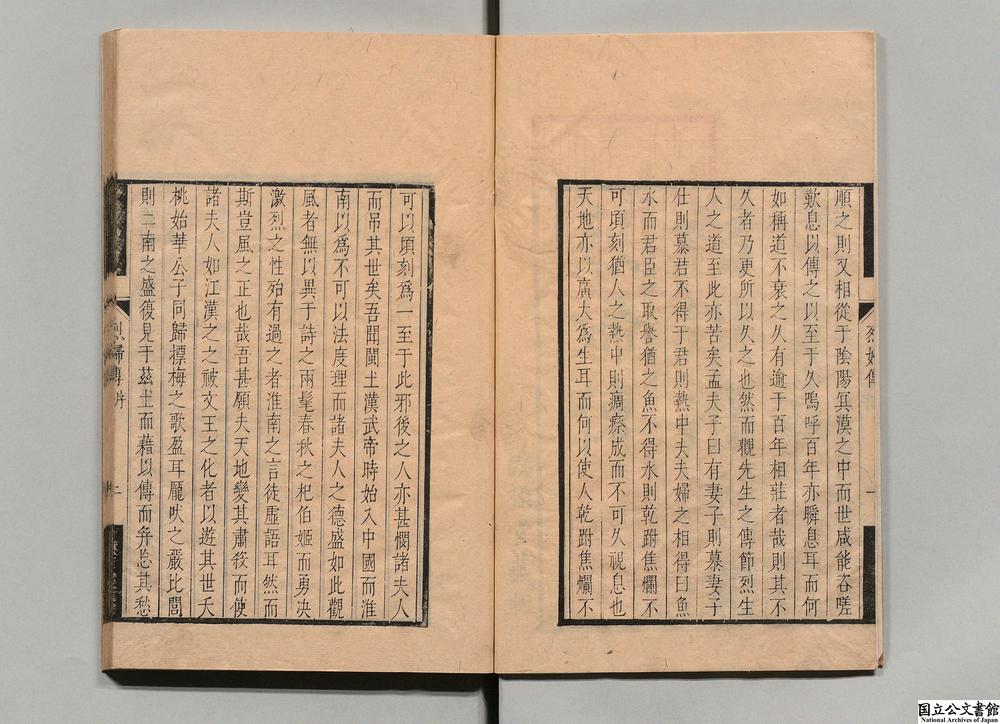 順之則又相從于陰陽冥漠之中而世咸能咨嗟
歎息以傳之以至于久嗚呼百年亦瞬息耳而何
如稱道不衰之久有逾于百年相莊者哉則其不
久者乃更所以久之也然而觀先生之傳節烈生
人之道至此亦苦矣孟夫子曰有妻子則慕妻子
仕則慕君不得于君則熱中夫夫婦之相得曰魚
水而君臣之取譽猶之魚不得水則乾跗焦爛不
可頃刻猶人之熱中則痟瘵成而不可久視息也
天地亦以廣大為生耳而何以使人乾跗焦爛不
烈婦傳
一
可以頃刻爲一至于此邪後之人亦甚憫諸夫人
而吊其世矣吾聞閩土漢武帝時始入中國而淮
南以爲不可以法度理而諸夫人之德盛如此觀
風者無以異于詩之兩髦春秋之杞伯姬而勇决
激烈之性殆有過之者淮南之言徒虛語耳然而
斯豈風之正也哉吾甚願夫天地變其肅殺而使
諸夫人如江漢之之被文王之化者以遊其世夭
桃始華公子同歸摽梅之歌盈耳尨吠之嚴比閭
則二南之盛復見于茲土而藉以傳而弁忘其愁
烈婦傳
二
国立公文書館
National Archives of Japan